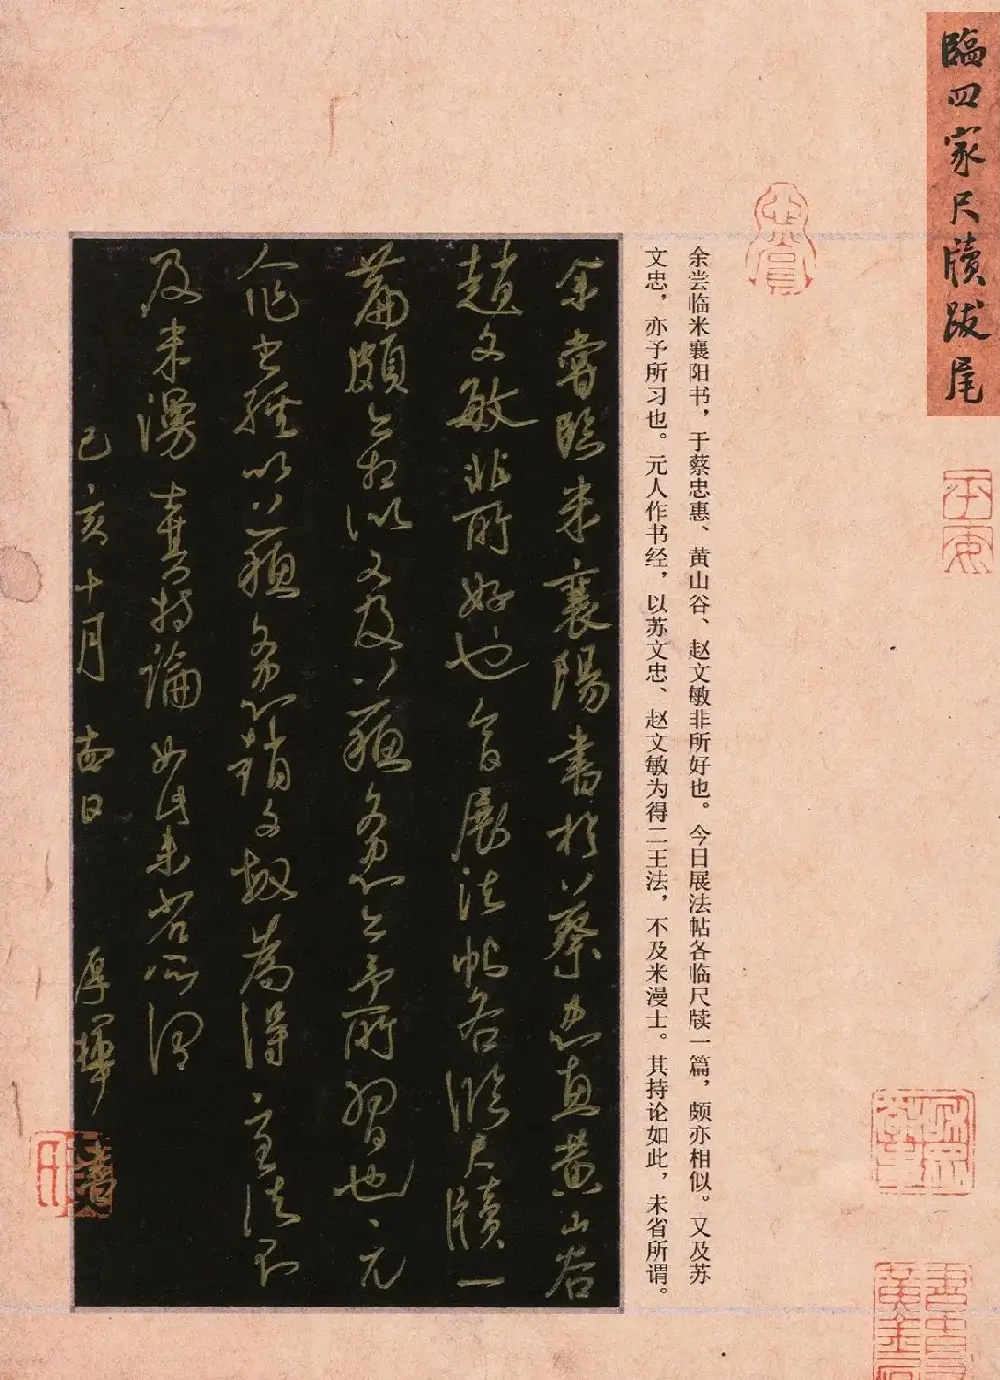 臨四家尺牘跋尾
余尝临米襄阳书，于蔡忠惠、黄山谷、赵文敏非所好也。今日展法帖各临尺牍一篇，颇亦相似。又及苏
文忠，亦予所习也。元人作书经，以苏文忠、赵文敏为得二王法，不及米漫士。其持论如此，未省所谓。
余嘗臨米襄陽書於蔡忠惠黄山谷
趙文敏非所好也今日展法帖各臨尺牘一
篇頗亦相似又及蘇文忠亦予所習也元
人作書經以蘇文忠趙文敏為得二王法不
及米漫士其持論如此未省所謂
己亥十月 日 厚輝書
平安